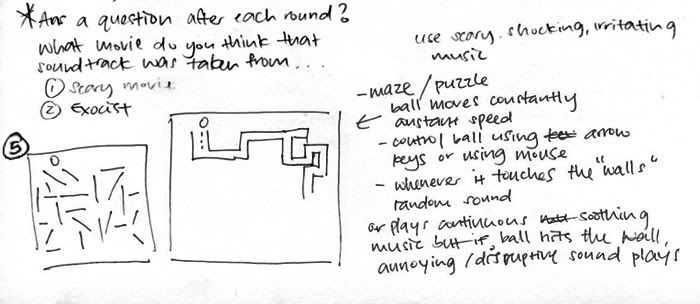 *Ans a question after each round?
What movie do you think that
soundtrack was taken from...
① Scary movie
② Exocist
⑤
use scary. shocking, irritating
music
- maze / puzzle
ball moves constantly
constant speed
- control ball using arrow
keys or using mouse
- whenever it touches the "walls"
random sound
or plays continuous soothing
music but if ball hits the wall,
annoying / disruptive sound plays